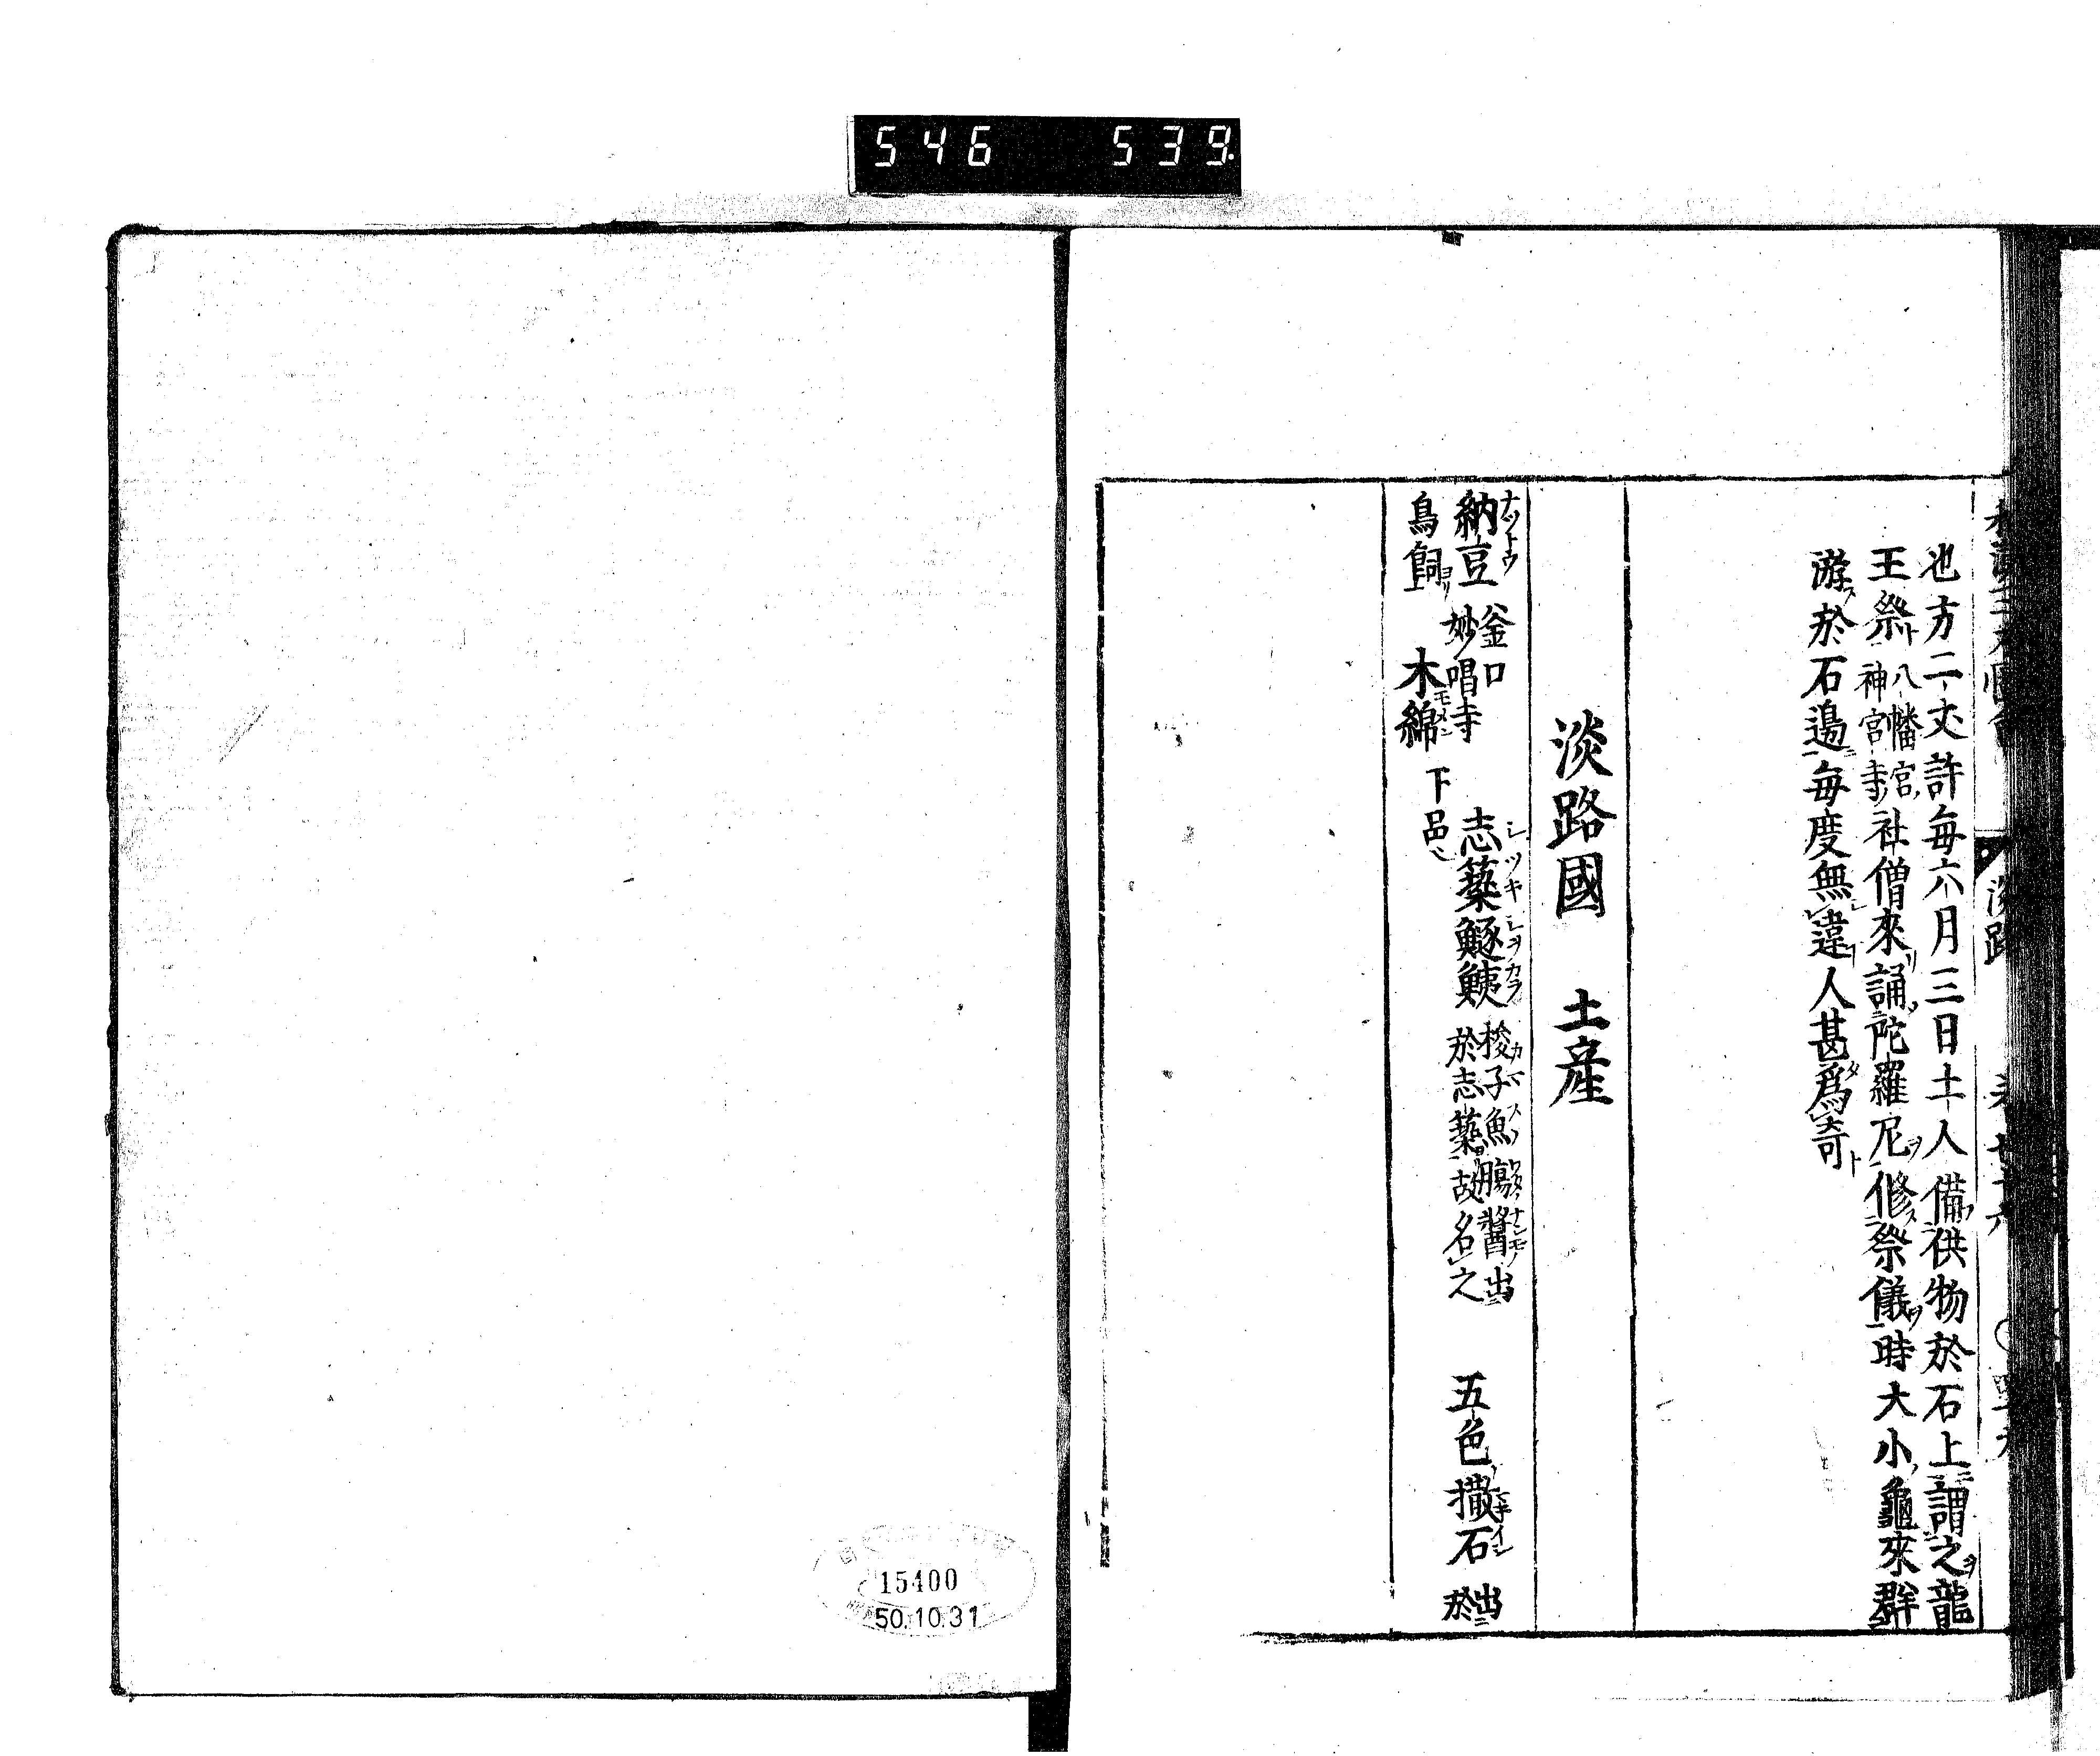 546 539.
也方二丈許毎六月三日土人備供物於石上謂之龍
王祭八幡宮神宮寺社僧來誦陀羅尼修祭儀時大小龜來群
游於石邉毎度無違人甚爲奇
淡路國 土産
納豆 釜口妙唱寺 志築鱁鮧 梭子魚腸醬出於志築故名之 五色撒石 出於
鳥飼 木綿 下品
15400
50.10.31